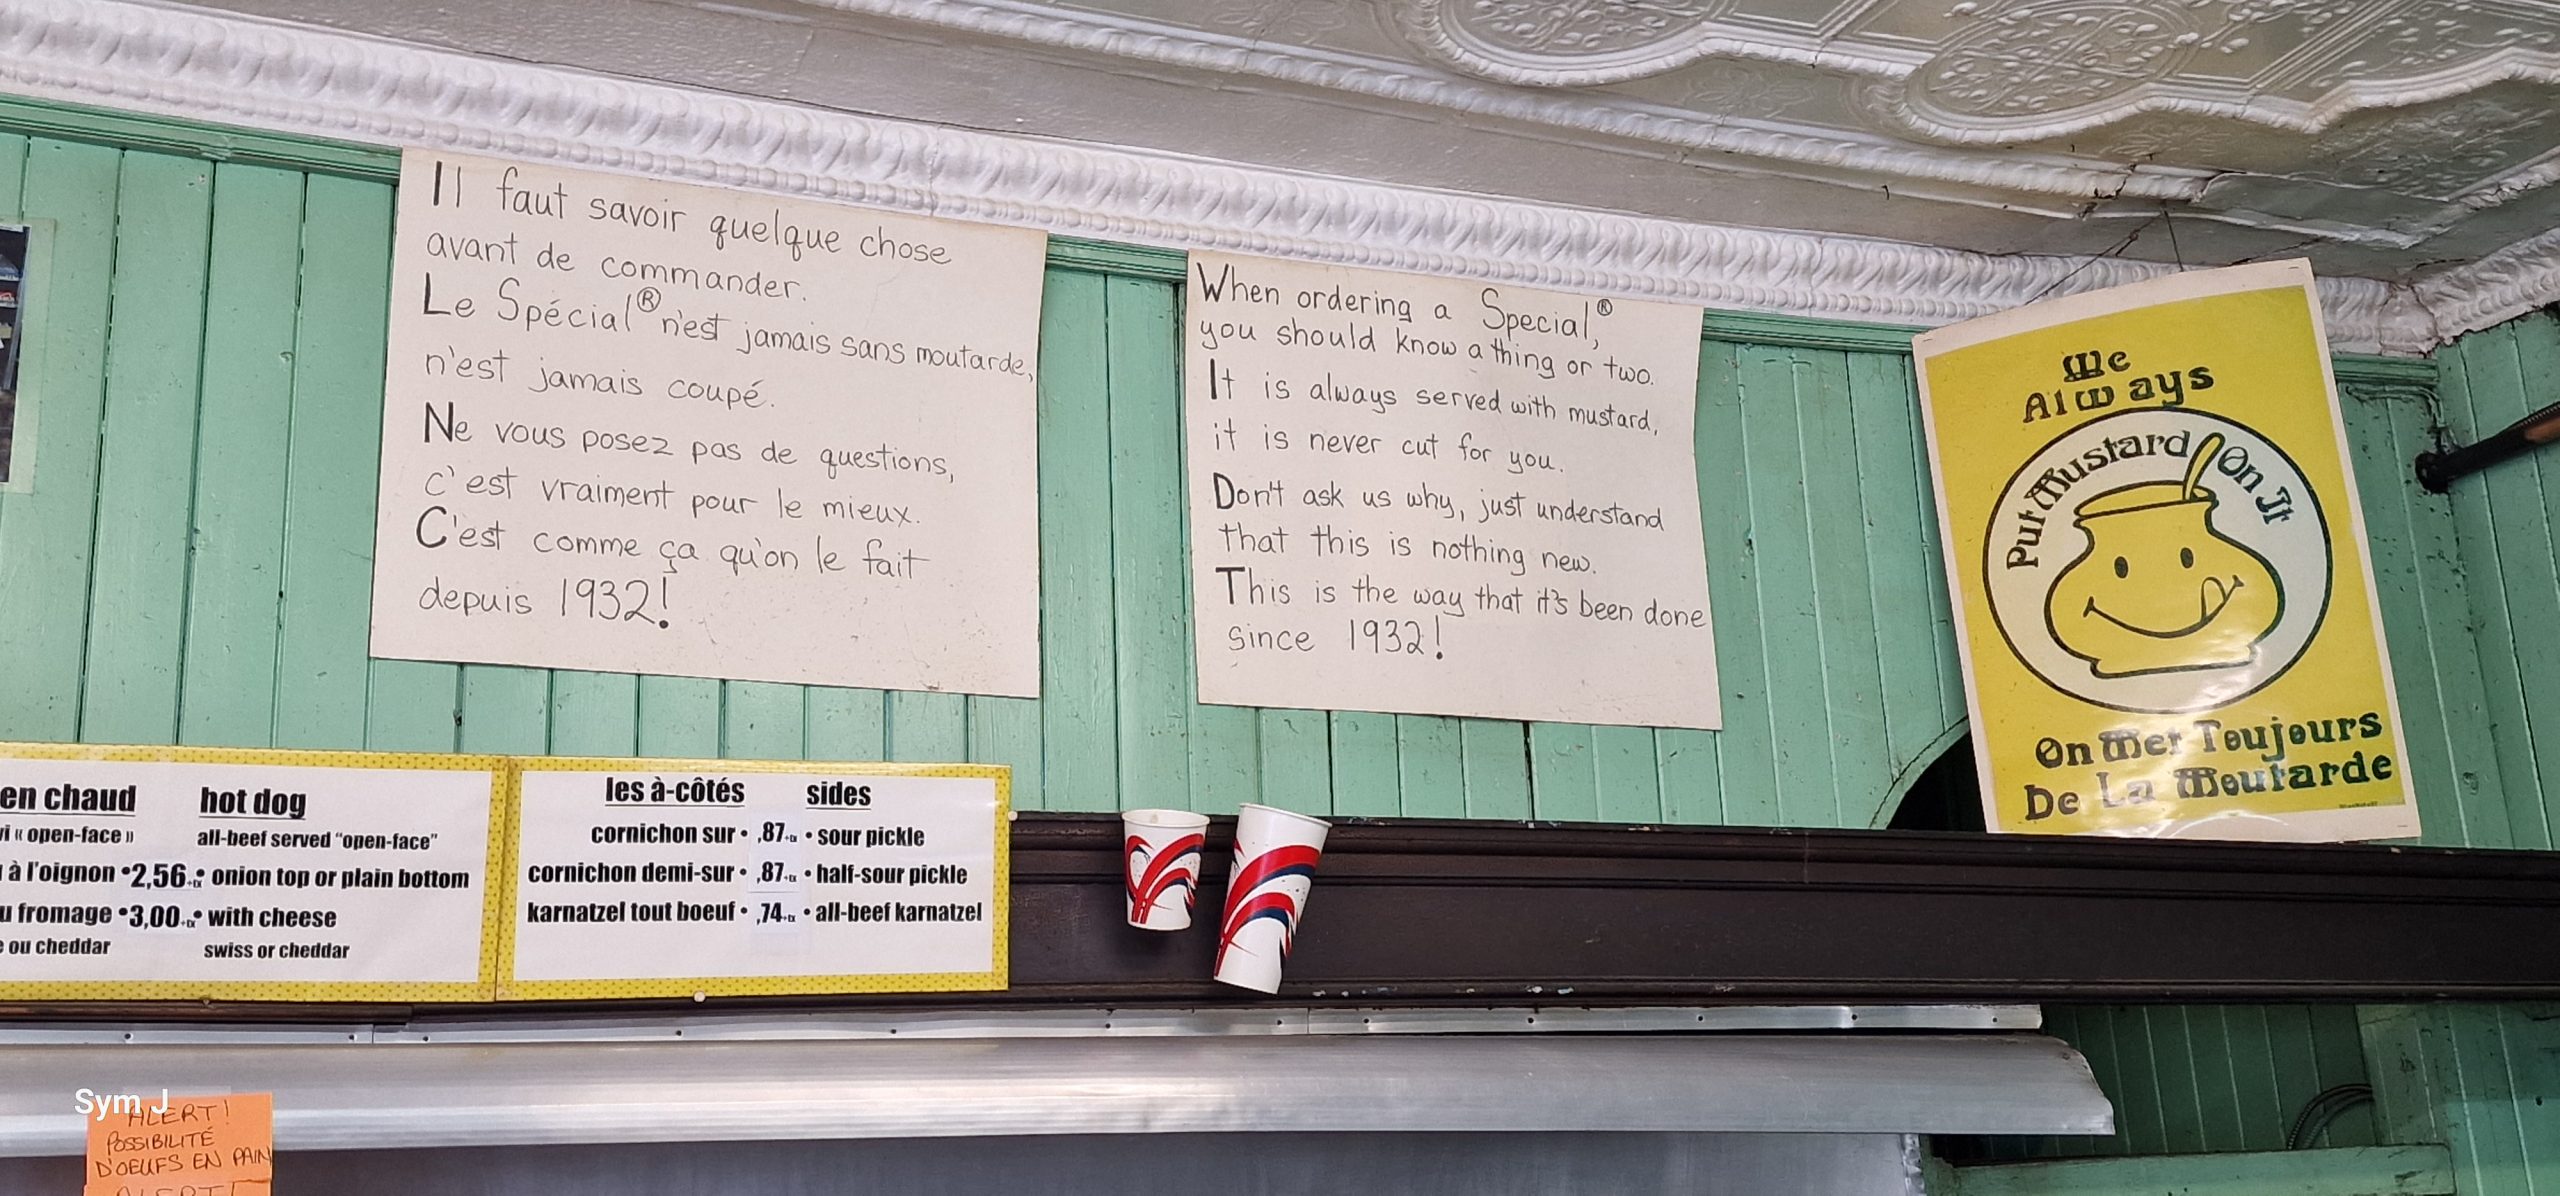 Il faut savoir quelque chose
avant de commander.
Le Spécial® n'est jamais sans moutarde,
n'est jamais coupé.
Ne vous posez pas de questions,
c'est vraiment pour le mieux.
C'est comme ça qu'on le fait
depuis 1932!
When ordering a Special,®
you should know a thing or two.
It is always served with mustard,
it is never cut for you.
Don't ask us why, just understand
that this is nothing new.
This is the way that it's been done
since 1932!
We
Always
Put Mustard On It
On Met Toujours
De La Moutarde
en chaud hot dog
« open-face » all-beef served "open-face"
à l'oignon • 2,56 +tx • onion top or plain bottom
fromage • 3,00 +tx • with cheese
ou cheddar swiss or cheddar
les à-côtés sides
cornichon sur • ,87 +tx • sour pickle
cornichon demi-sur • ,87 +tx • half-sour pickle
karnatzel tout boeuf • ,74 +tx • all-beef karnatzel
Sym J
ALERT!
POSSIBILITÉ
D'OEUFS EN PAIN
ALERT!